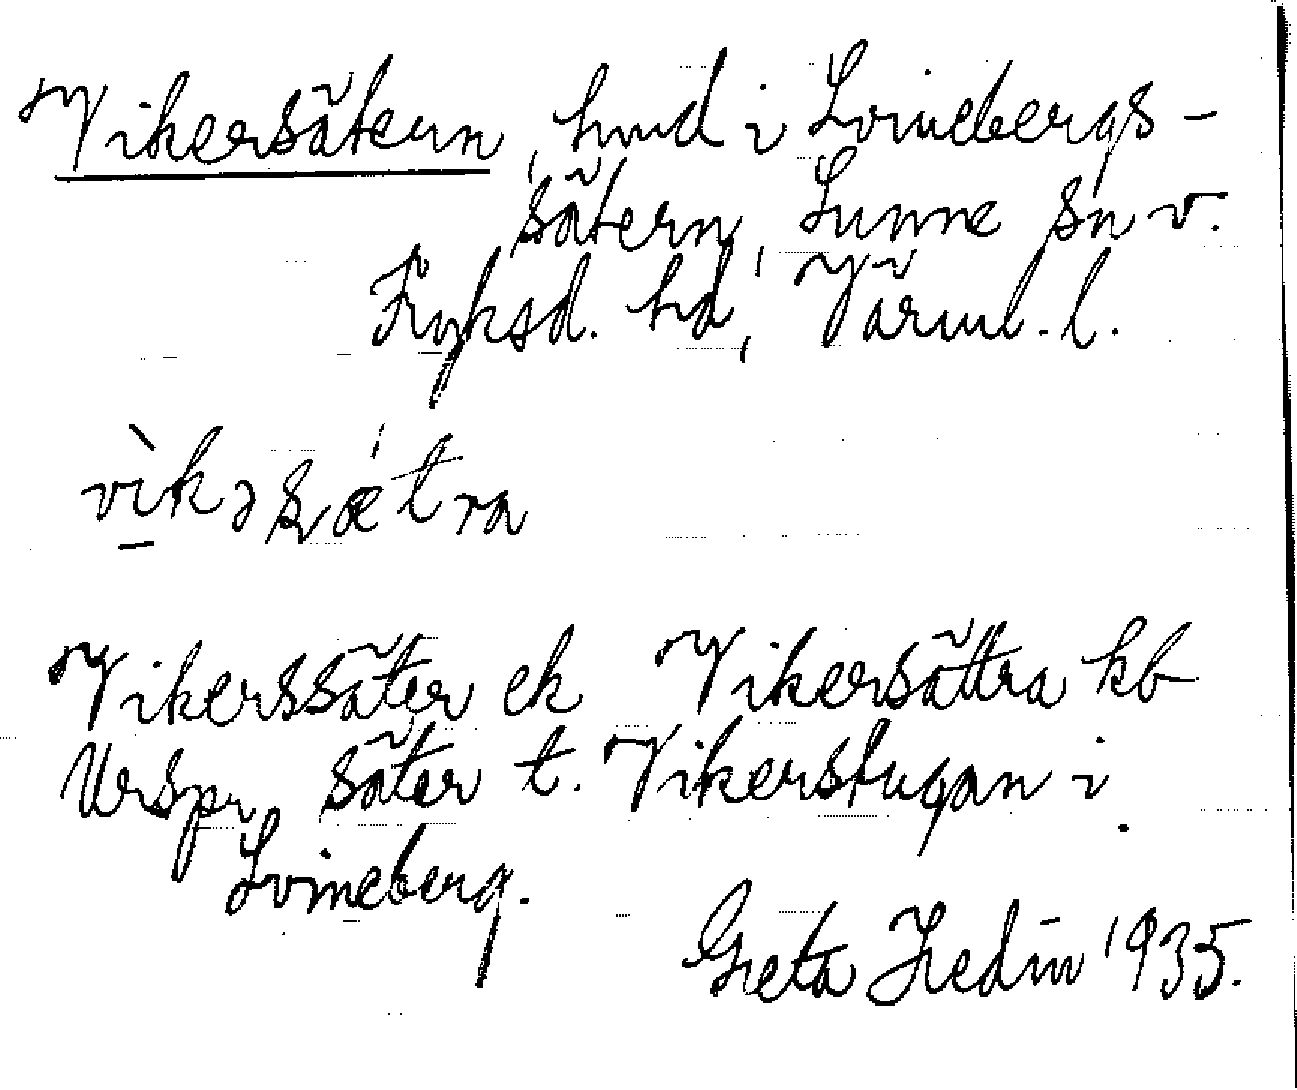 Vikersätern, hmd i Lvinebergs-
sätern, Sunne sn v.
Fryksd. hd, Värml. l.
vìkəsǽtra
Vikerssäter ek Vikersättra kb
Urspr. säter t. Vikerstugan i
Lvineberg.
Greta Hedin 1935.